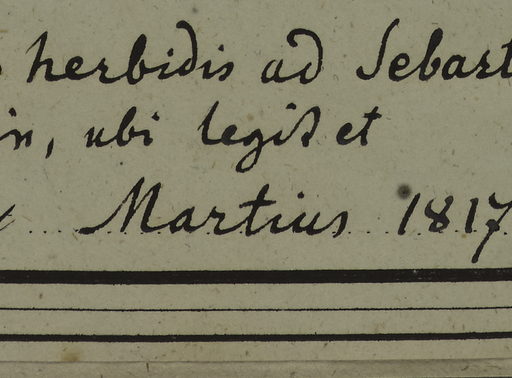 herbidis ad Sebast
in, ubi legit et
Martius 1817